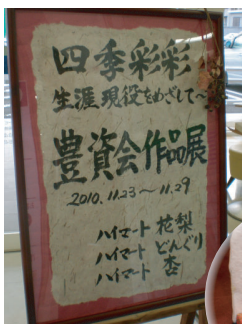 四季彩彩
生涯現役をめざして〜
豊資会作品展
2010.11.23〜11.29
ハイマート 花梨
ハイマート どんぐり
ハイマート 杏